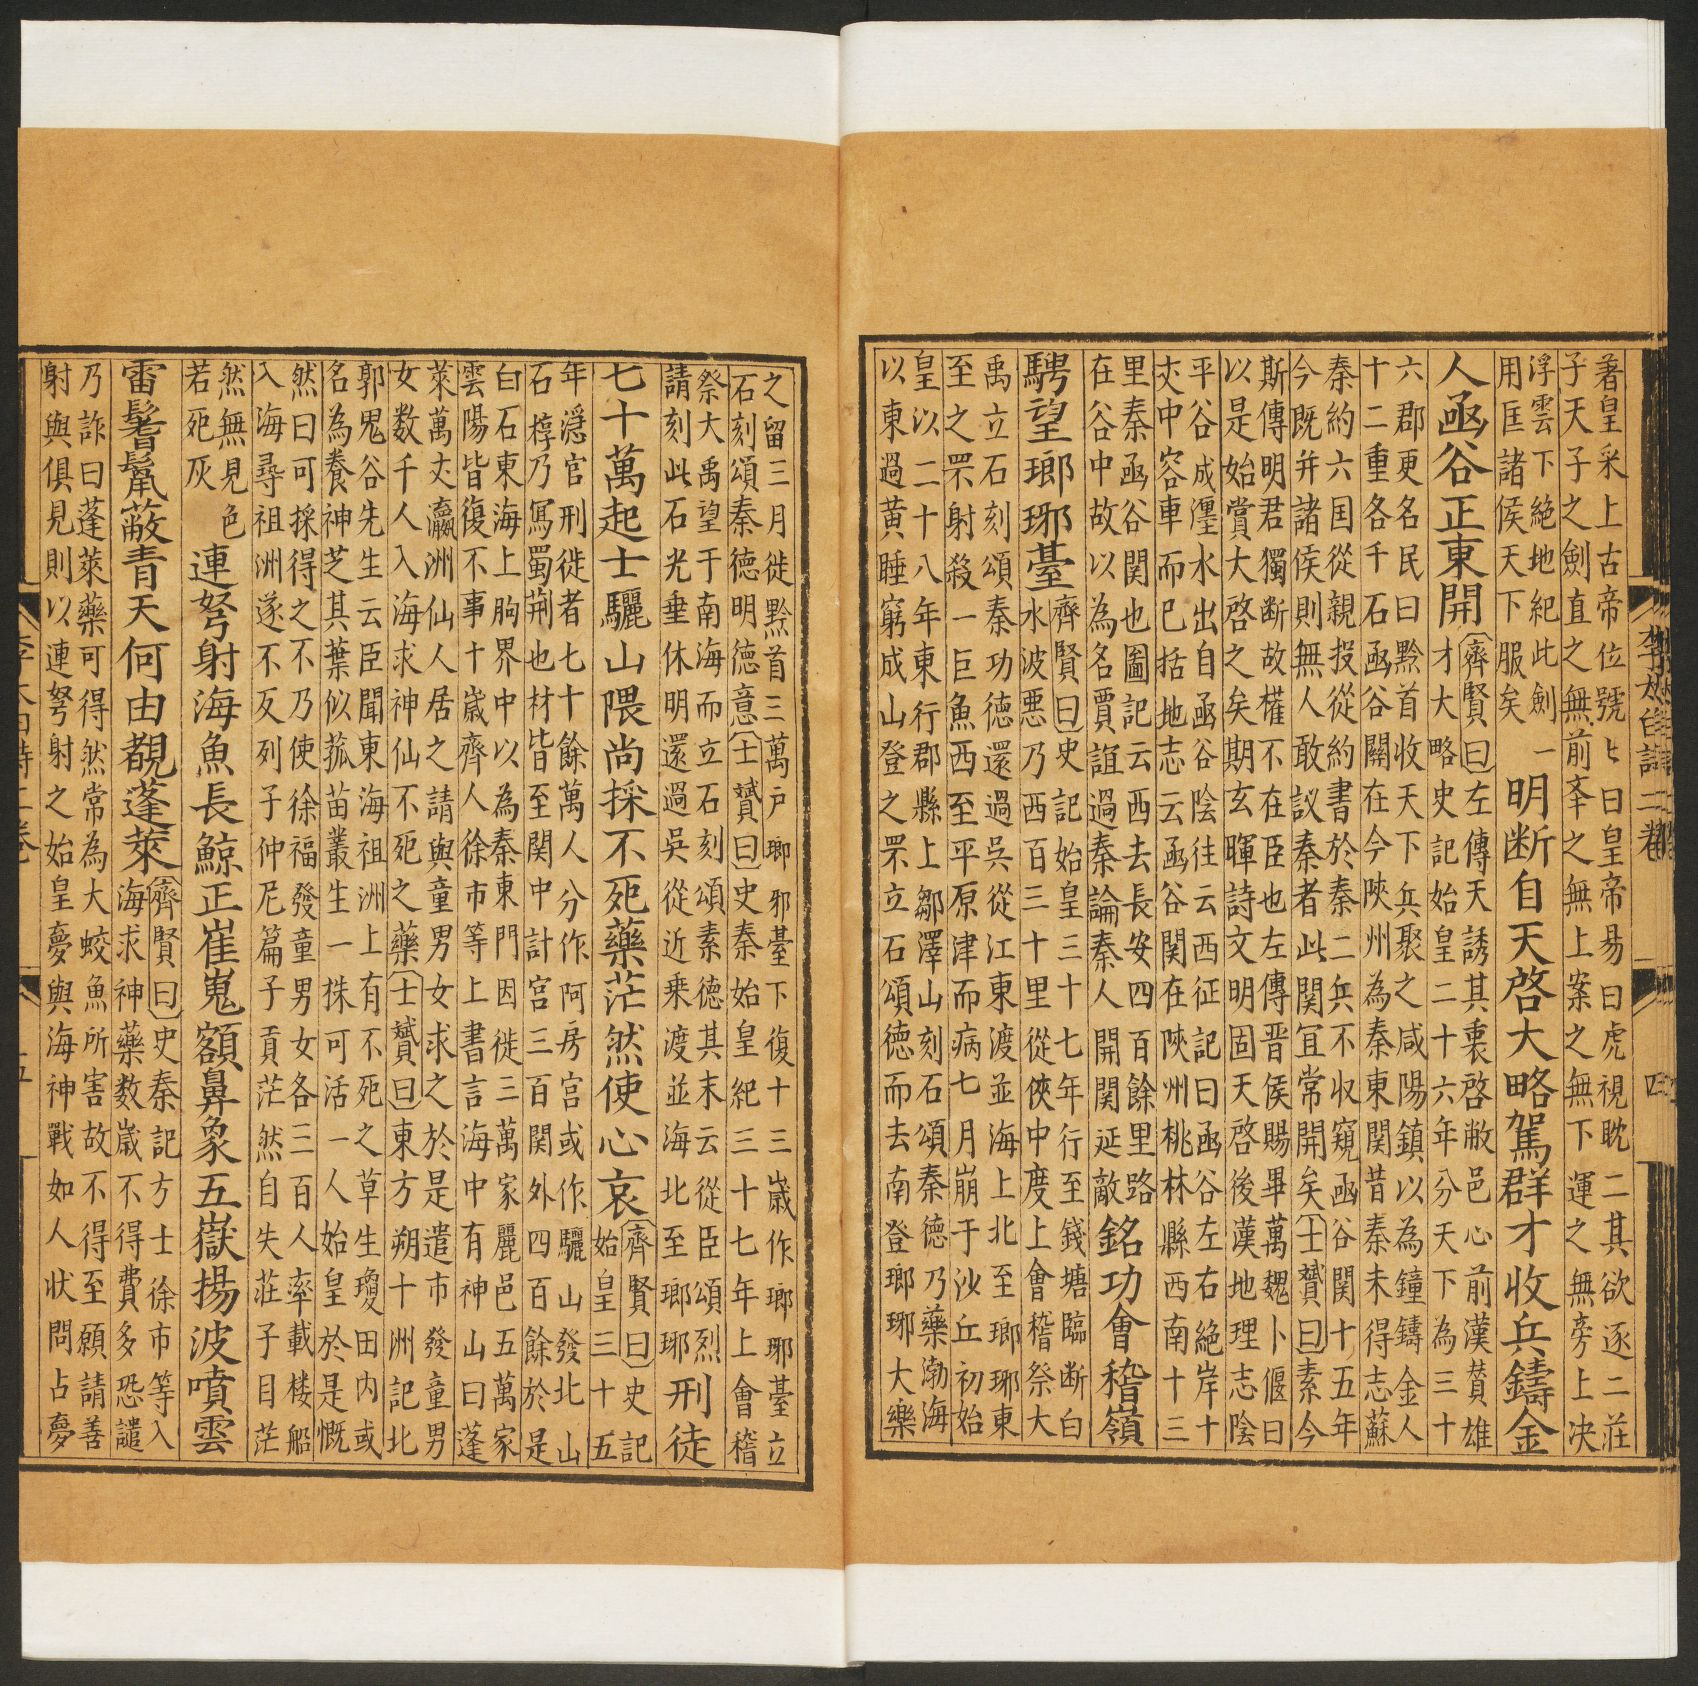 著皇采上古帝位號ヒ曰皇帝易曰虎視眈二其欲逐二莊
子天子之劍直之無前夲之無上案之無下運之無旁上决
浮雲下絕地紀此劍一
用匡諸侯天下服矣
明断自天啓大略駕群才收兵鑄金
人凾谷正東開
齊賢曰左傳天誘其衷啓敝邑心前漢賛雄
才大略史記始皇二十六年分天下為三十
六郡更名民曰黔首收天下兵聚之咸陽鎮以為鐘鑄金人
十二重各千石凾谷關在今陝州為秦東関昔秦未得志蘇
秦約六囯從親投從約書於秦二兵不収窺凾谷関十五年
今既并諸侯則無人敢議秦者此関宜常開矣士贇曰素今
斯傳明君獨断故權不在臣也左傳晋侯賜畢萬魏卜偃曰
以是始賞大啓之矣期玄暉詩文明固天啓後漢地理志陰
平谷成湹水出自凾谷陰往云西征記曰凾谷左右絶岸十
夾中容車而已括地志云凾谷関在陝州桃林縣西南十三
里秦凾谷関也圖記云西去長安四百餘里路
在谷中故以為名賈誼過秦論秦人開関延敵
銘功會稽嶺
騁望瑯琊臺
齊賢曰史記始皇三十七年行至錢塘臨断白
水波悪乃西百三十里從俠中度上會稽祭大
禹立石刻頌秦功徳還過吳從江東渡並海上北至瑯琊東
至之罘射殺一巨魚西至平原津而病七月崩于沙丘初始
皇以二十八年東行郡縣上鄒澤山刻石頌秦徳乃藥渤海
以東過黄睡窮成山登之罘立石頌徳而去南登瑯琊大樂
之留三月徙黔首三萬戸瑯邪臺下復十三歲作瑯琊臺立
石刻頌秦德明徳意士贇曰史秦始皇紀三十七年上會稽
祭大禹望于南海而立石刻頌素德其末云從臣頌烈
請刻此石光垂休明還過吳從近乗渡並海北至瑯琊
刑徒
七十萬起士驪山隈尚採不死藥茫然使心哀
齊賢曰史記
始皇三十五
年𨼆官刑徙者七十餘萬人分作阿房宫或作驪山發北山
石椁乃寫蜀荊也材皆至関中計宫三百関外四百餘於是
白石東海上朐界中以為秦東門因徙三萬家麗邑五萬家
雲陽皆復不事十歲齊人徐市等上書言海中有神山曰蓬
萊萬丈瀛洲仙人居之請與童男女求之於是遣市發童男
女数千人入海求神仙不死之藥士贇曰東方朔十洲記北
郭鬼谷先生云臣聞東海祖洲上有不死之草生瓊田内或
名為養神芝其葉似菰苗叢生一株可活一人始皇於是慨
然曰可採得之不乃使徐福發童男女各三百人率載楼船
入海尋祖洲遂不反列子仲尼篇子貢茫然自失莊子目茫
然無見色
若死灰
連弩射海魚長鯨正崔嵬額鼻象五嶽揚波噴雲
雷鬐鬣蔽青天何由覩蓬萊
齊賢曰史秦記方士徐市等入
海求神藥数嵗不得費多恐譴
乃詐曰蓬萊藥可得然常為大蛟魚所害故不得至願請善
射與俱見則以連弩射之始皇夢與海神戰如人状問占夢
李太白詩二卷
四